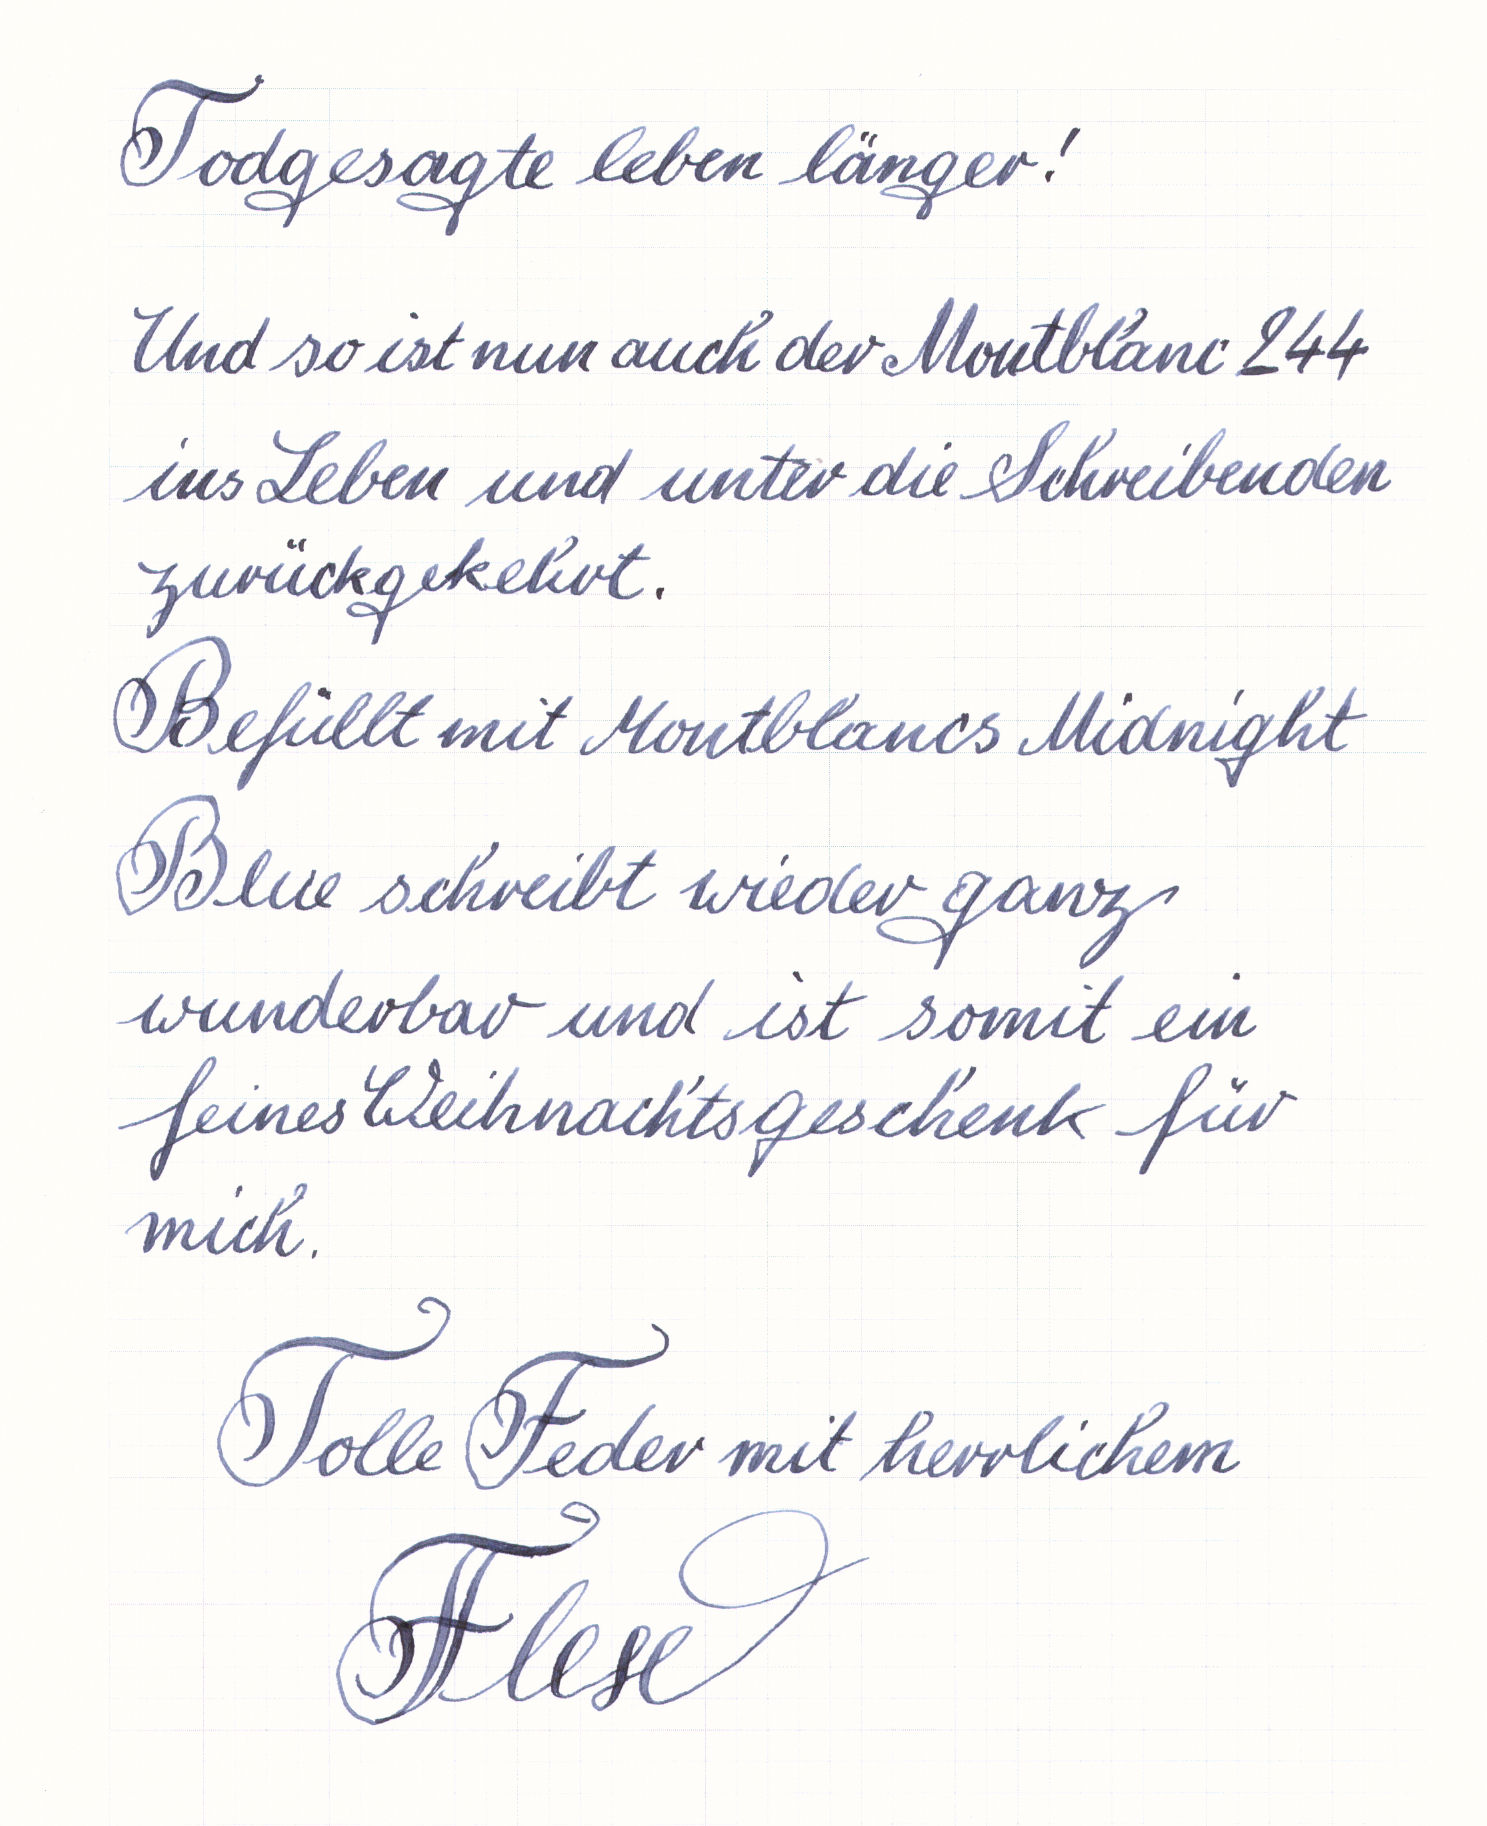 Todgesagte leben länger!
Und so ist nun auch der Montblanc 244
ins Leben und unter die Schreibenden
zurückgekehrt.
Befüllt mit Montblancs Midnight
Blue schreibt wieder ganz
wunderbar und ist somit ein
feines Weihnachtsgeschenk für
mich.
Tolle Feder mit herrlichem
Flese